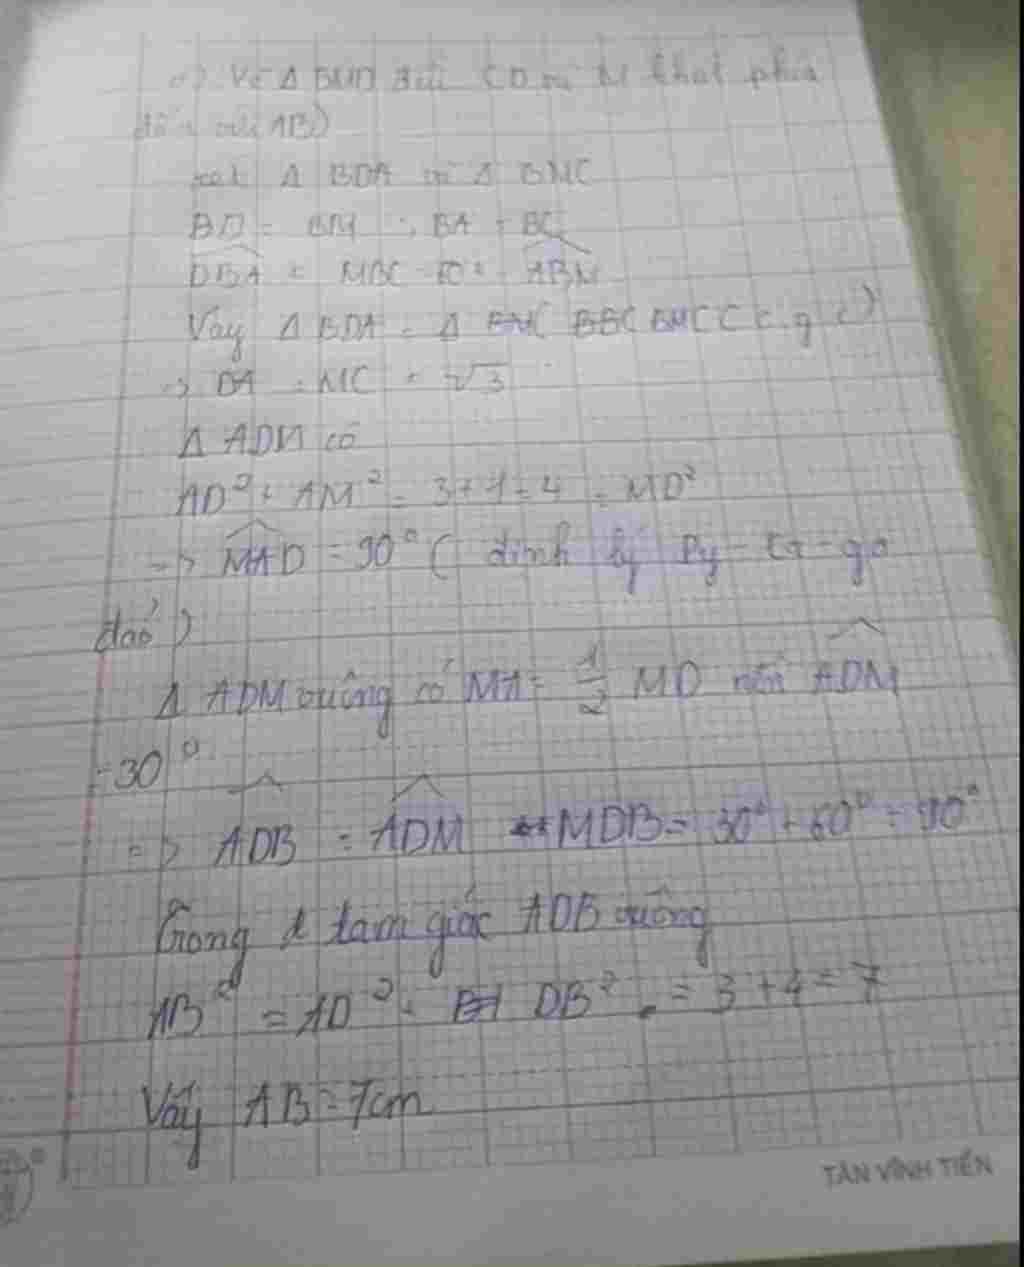 Vẽ Δ BMD đều (D và M khác phía
đối với AB)
xét Δ BDA và Δ BMC
BD = BM ; BA = BC
DBA = MBC = 60° - ABM
Vậy Δ BDA = Δ BMC (c.g.c)
=> DA = MC = √3
Δ ADM có
AD² + AM² = 3 + 1 = 4 = MD²
=> MAD = 90° ( định lý Py - ta - go
đảo )
Δ ADM vuông có MA = 1/2 MD nên ADM
= 30°
=> ADB = ADM + MDB = 30° + 60° = 90°
Trong tam giác ADB vuông
AB² = AD² + DB² = 3 + 4 = 7
Vậy AB = 7cm
TÂN VĨNH TIẾN